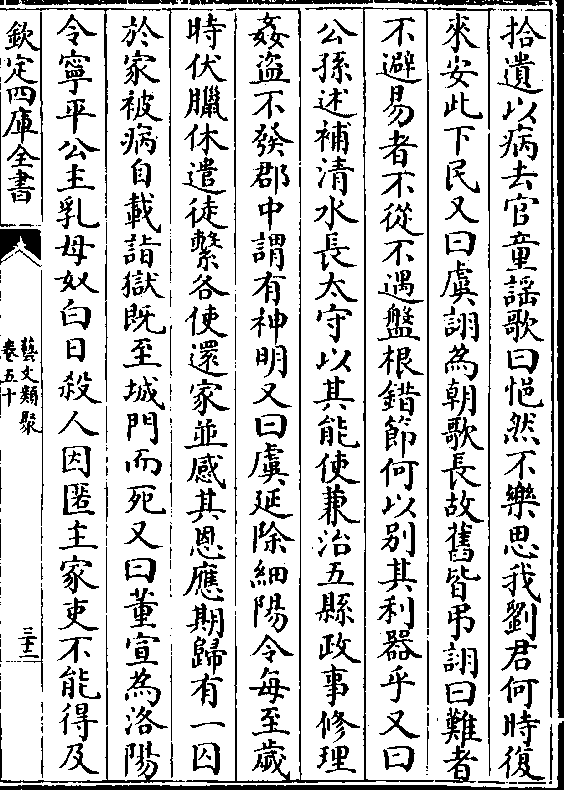 拾遺以病去官童謡歌曰悒然不樂思我劉君何時復
來安此下民又曰虞詡為朝歌長故舊皆弔詡曰難者
不避易者不從不遇盤根錯節何以别其利器乎又曰
公孫述補清水長太守以其能使兼治五縣政事修理
姦盜不發郡中謂有神明又曰虞延除細陽令每至歲
時伏臘休遣徒繫各使還家並感其恩應期歸有一囚
於家被病自載詣獄既至城門而死又曰董宣為洛陽
令寧平公主乳母奴白日殺人因匿主家吏不能得及
欽定四庫全書
藝文類聚
卷五十
三十二